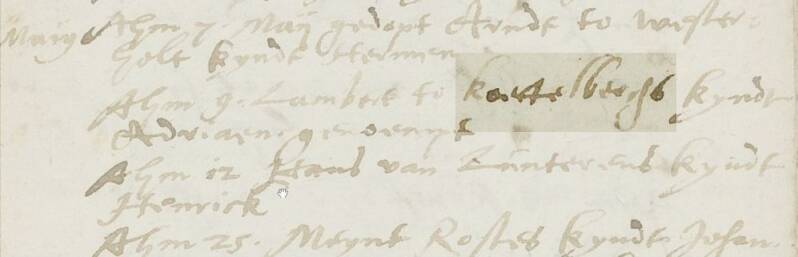 Maij Ahm 7. Maij gedopt Arndt to wester-
holt kyndt Hermen
Ahm 9. Lambert to koettelberghs kyndt
Adriaen genoempt
Ahm 12 Hans van Lunterens kyndt
Henrick
Ahm 25. Meynt Rostes kyndt Johan